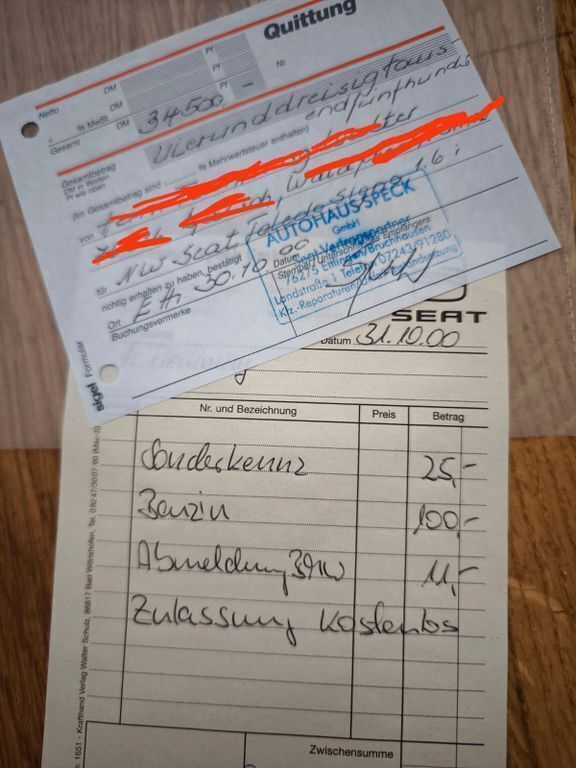 Quittung
Netto DM Pf Nr.
+ % MwSt. DM Pf
Gesamt DM 34500,- Pf
Gesamtbetrag Vierunddreisigtaus
DM in Worten endfünfhund
Pf wie oben
(Im Gesamtbetrag sind % Mehrwertsteuer enthalten)
von
für NW Seat Toledo Signo 1.6 i
richtig erhalten zu haben, bestätigt
Ort Eth. 30.10.00 Datum
Buchungsvermerke Stempel/Unterschrift des Empfängers
AUTOHAUS SPECK
GmbH
Seat Vertragspartner
76275 Ettlingen/Bruchhausen
Landstraße 1 Telefon 07243/91280
Kfz.-Reparaturen/
sigel Formular
SEAT
Datum 31.10.00
Nr. und Bezeichnung Preis Betrag
Sonderkennz 25,-
Benzin 100,-
Abmeldung 11,-
Zulassung kostenlos
Zwischensumme
1651 - Krafthand Verlag Walter Schulz, 86817 Bad Wörishofen, Tel. 0 82 47/30 07-90